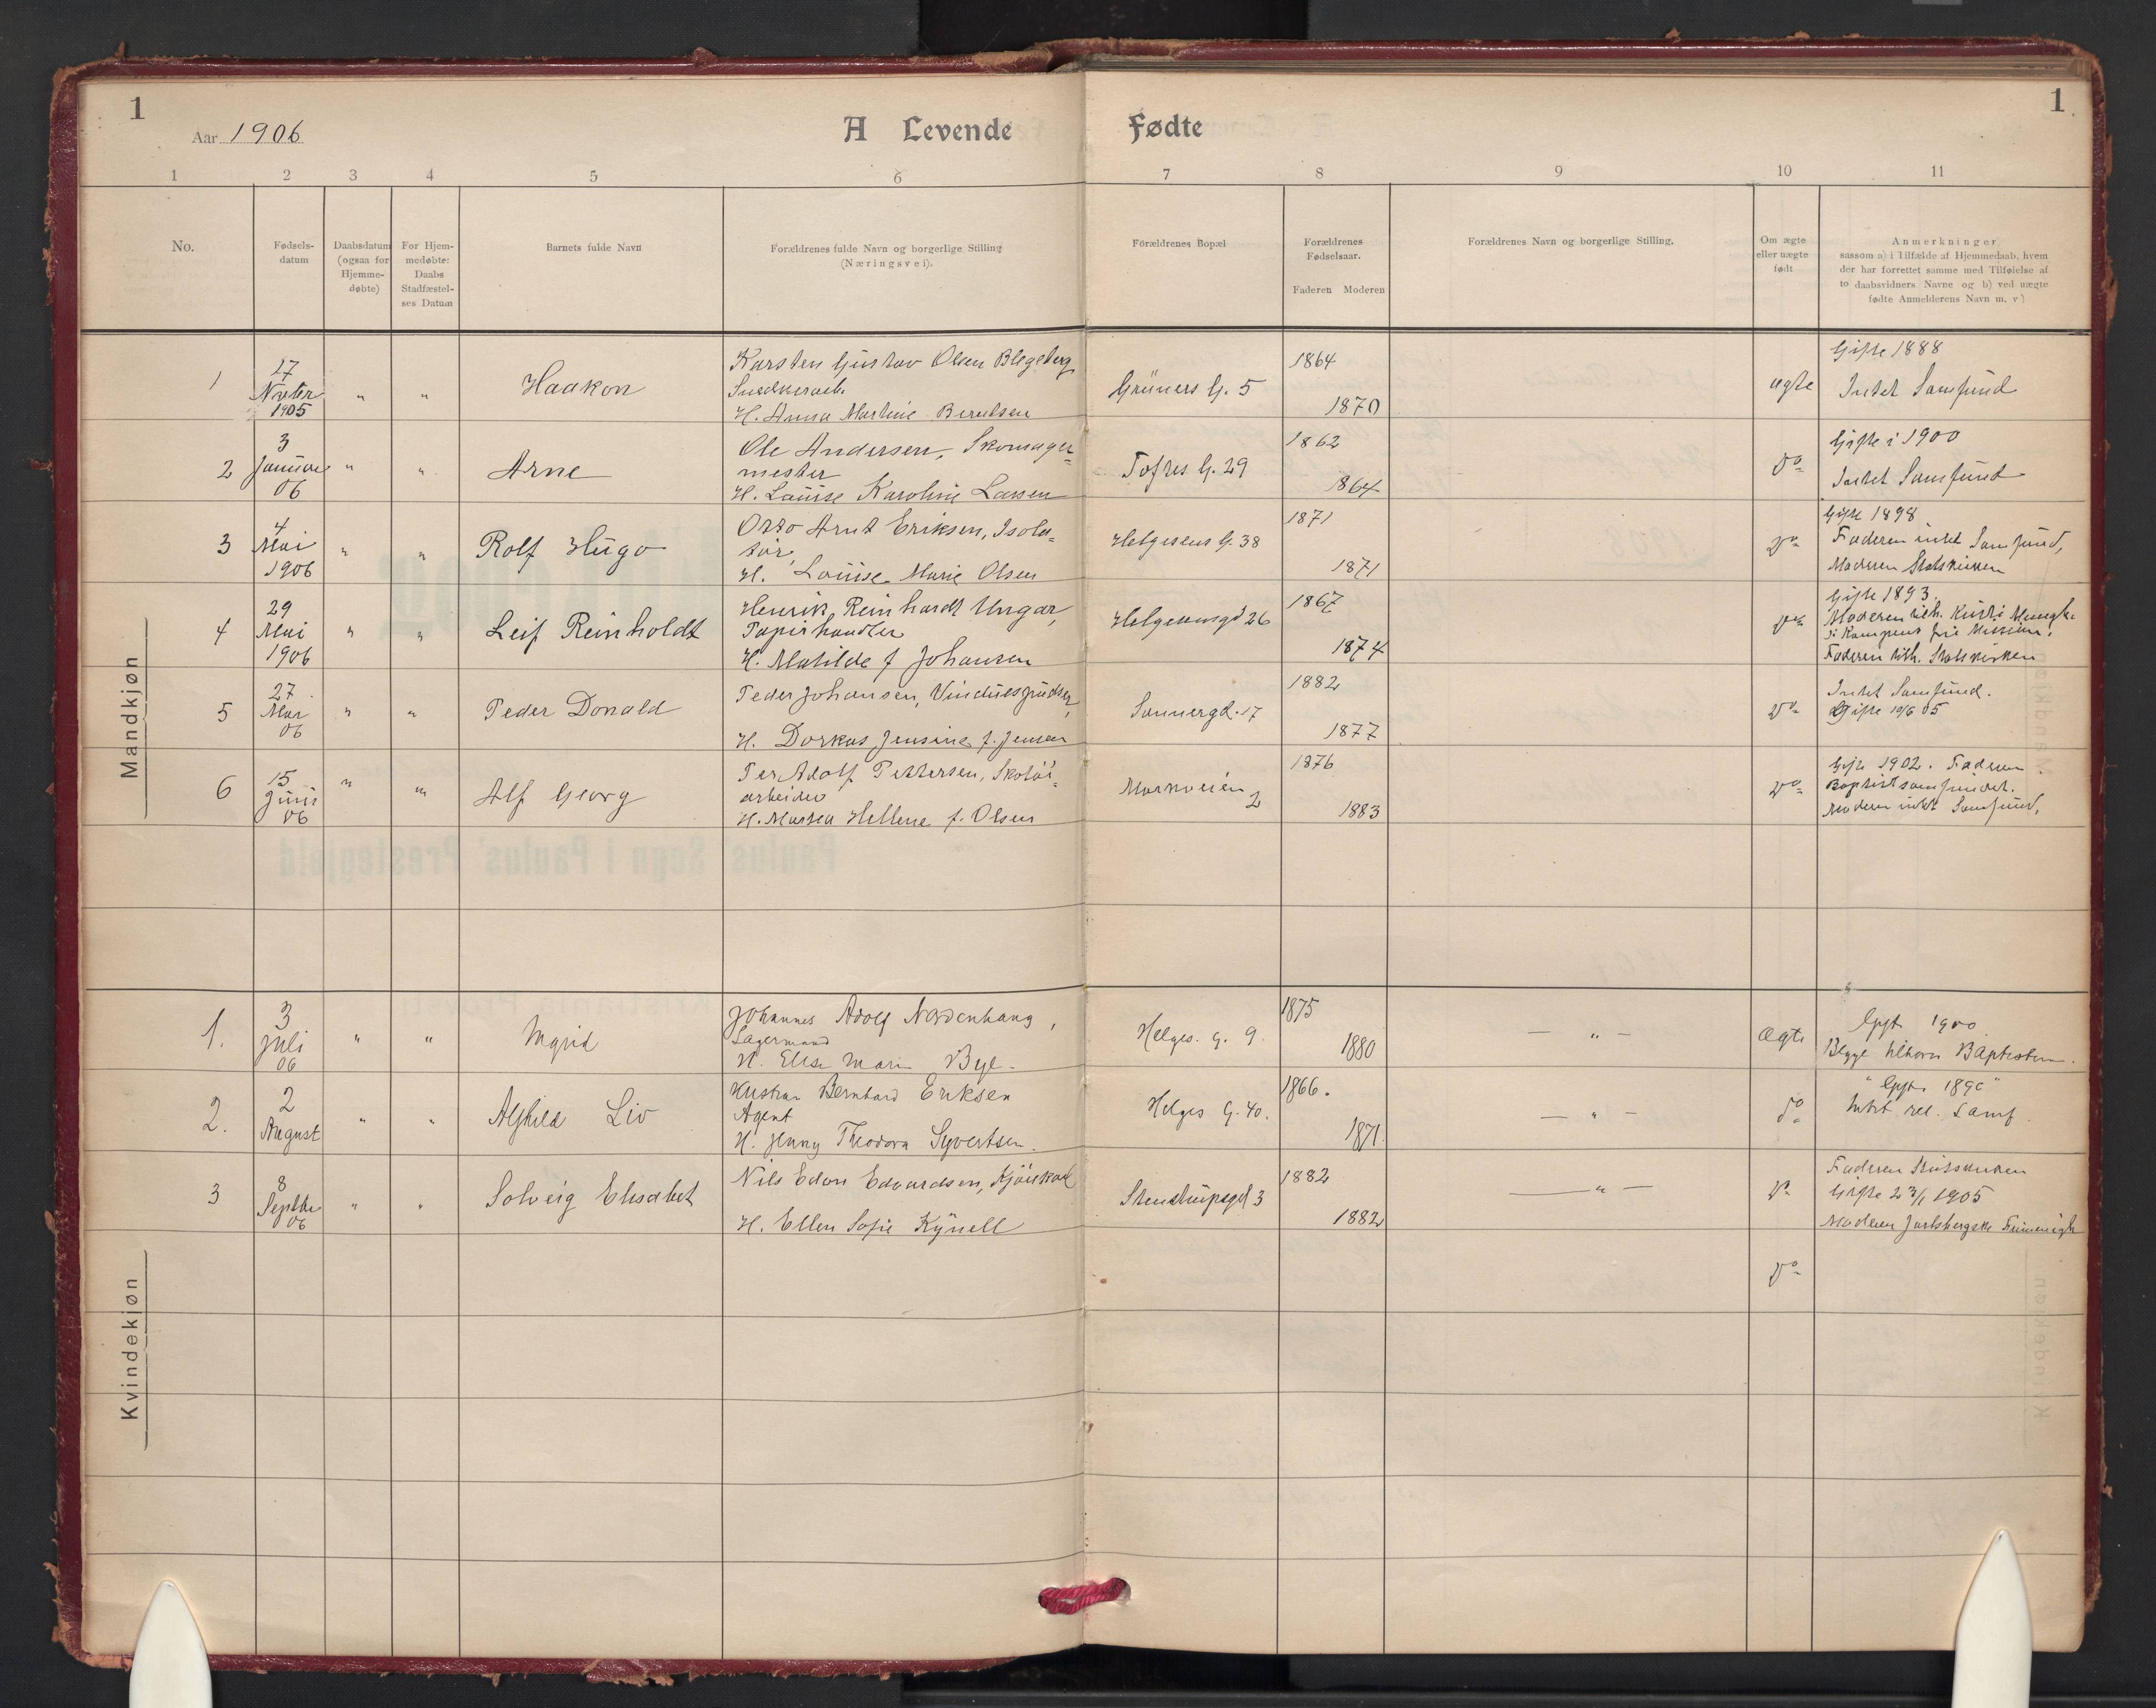 1
Aar 1906
A Levende Fødte
1
1 2 3 4 5 6 7 8 9 10 11
No.
Fødsels-
datum
Daabsdatum
(ogsaa for
Hjemme-
døbte)
For Hjem-
medøbte:
Daabs
Stadfæstel-
ses Datum
Barnets fulde Navn
Forældrenes fulde Navn og borgerlige Stilling
(Næringsvei).
Forældrenes Bopæl
Forældrenes
Fødselsaar.
Faderen Moderen
Forældrenes Navn og borgerlige Stilling.
Om ægte
eller uægte
født
Anmerkninger,
sassom a) i Tilfælde af Hjemmedaab, hvem
der har forrettet samme med Tilføielse af
to daabsvidners Navne og b) ved uægte
fødte Anmelderens Navn m. v)
Mandkjøn
1
17
Novbr
1905
" "
Haakon
Karsten Gustav Olsen Blegeberg
Snedkerarb.
H. Anna Martine Berntsen
Grüners G. 5
1864
1870
ægte
Gifte 1888
Intet Samfund
2
3
Januar
06
" "
Arne
Ole Andersen, Skomager=
mester
H. Louise Karoline Larsen
Toftes G. 29
1862
1864
Do
Gifte i 1900
Intet Samfund
3
4
Mai
1906
" "
Rolf Hugo
Otto Arnt Eriksen, Isola=
tör,
H. Louise Marie Olsen
Helgesens G. 38
1871
1871
Do
Gifte 1898
Faderen intet Samfund,
Moderen Statskirken
4
29
Mai
1906
" "
Leif Reinholdt
Henrik Reinhardt Ungar,
Papirhandler
H. Matilde f Johansen
Helgesensgd 26
1867
1874
Do
Gifte 1893.
Moderen tilh. Kristi Menigh.
i Kampens frie Mission.
Faderen tilh. Statskirken
5
27
Mar
06
" "
Peder Donald
Peder Johansen, Vinduespudser,
H. Dorkas Jensine f. Jensen
Sannergd. 17
1882
1877
Do
Intet Samfund.
Gifte 10/6 05
6
15
Juni
06
" "
Alf Georg
Per Adolf Pettersen, Skotöi-
arbeider
H. Martea Hellene f. Olsen
Markveien
2
1876
1883
Do
Gifte 1902. Faderen
Baptistsamfundet.
Moderen intet Samfund,
Kvindekjøn
1.
3
Juli
06
" "
Ingrid
Johannes Adolf Nordenhaug,
Lagermand
H. Elise Marie Bye.
Helges. G. 9.
1875
1880
— " —
Ægte
Gift 1900
Begge tilhører Baptistern.
2.
2
August
" "
Alfhild Liv
Kristian Bernhard Eriksen
Agent
H. Jenny Theodora Syvertsen.
Helges G. 40.
1866.
1871.
— " —
do
" Gift. 1890 "
Intet rel. Samf.
3
8
Septbr
06
" "
Solveig Elisabet
Nils Edon Edvardsen, Kjöreskarl
H. Ellen Sofie Kynell
Stenstrupsgd 3
1882
1882
— " —
Do
Faderen Statskirken
Gifte 23/1 1905
Moderen Jarlsbergske Frimenigh
Do